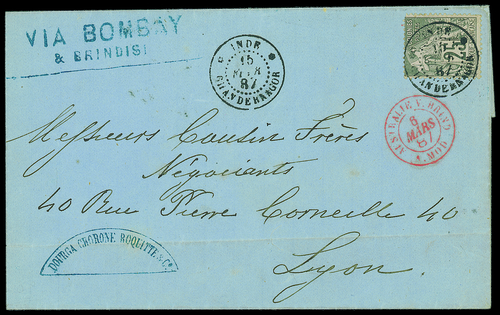 VIA BOMBAY
& BRINDISI
INDE
15
87
CHANDERNAGOR
INDE
15
87
CHANDERNAGOR
6
MARS
87
A. MOD
Messieurs Cousin Frères
Négociants
40 Rue Pierre Corneille 40
Lyon.
DOORGA CHORONE ROQUITTE & Co.